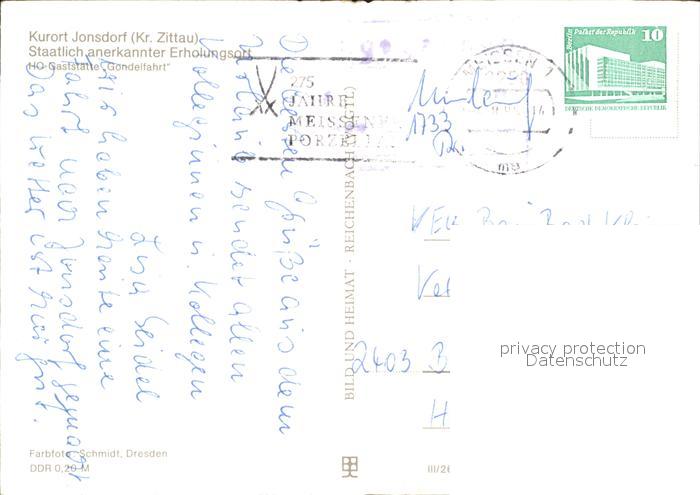 Kurort Jonsdorf (Kr. Zittau)
Staatlich anerkannter Erholungsort
HO-Gaststätte "Gondelfahrt"
Die besten Grüße aus dem
Urlaub sendet allen
Kolleginnen u. Kollegen
Seidel
Wir haben heute eine
Fahrt nach Jonsdorf gemacht
Das Wetter ist sehr gut.
Farbfoto: Schmidt, Dresden
DDR 0,20 M
BILD UND HEIMAT · REICHENBACH (VOGTL)
III/26
275
JAHRE
MEISSENER
PORZELLAN
MEISSEN 1
8250
Berlin Palast der Republik
10
DEUTSCHE DEMOKRATISCHE REPUBLIK
1733
VEB
2403 B
H
privacy protection
Datenschutz